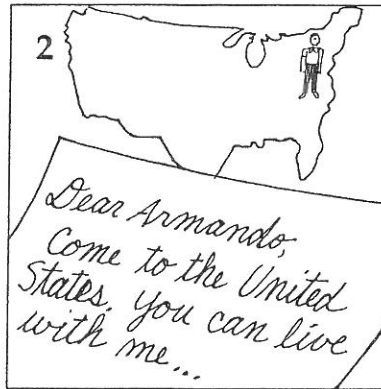 2
Dear Armando,
Come to the United
States. You can live
with me...